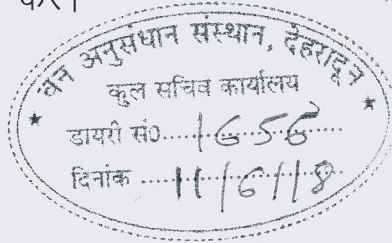 वन अनुसंधान संस्थान, देहरादून
कुल सचिव कार्यालय
डायरी सं0.....1656.....
दिनांक .....11/6/18